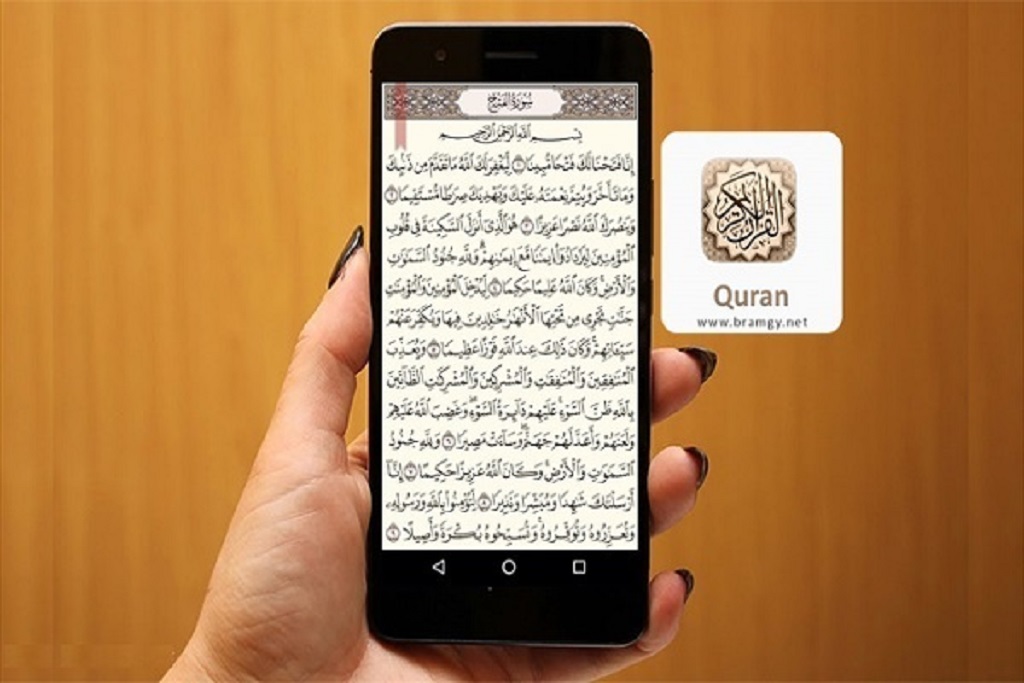 سُورَةُ الْفَتْحِ
بِسْمِ اللَّهِ الرَّحْمَٰنِ الرَّحِيمِ
إِنَّا فَتَحْنَا لَكَ فَتْحًا مُّبِينًا ١ لِّيَغْفِرَ لَكَ اللَّهُ مَا تَقَدَّمَ مِن ذَنبِكَ
وَمَا تَأَخَّرَ وَيُتِمَّ نِعْمَتَهُ عَلَيْكَ وَيَهْدِيَكَ صِرَاطًا مُّسْتَقِيمًا ٢
وَيَنصُرَكَ اللَّهُ نَصْرًا عَزِيزًا ٣ هُوَ الَّذِي أَنزَلَ السَّكِينَةَ فِي قُلُوبِ
الْمُؤْمِنِينَ لِيَزْدَادُوا إِيمَانًا مَّعَ إِيمَانِهِمْ وَلِلَّهِ جُنُودُ السَّمَاوَاتِ
وَالْأَرْضِ وَكَانَ اللَّهُ عَلِيمًا حَكِيمًا ٤ لِّيُدْخِلَ الْمُؤْمِنِينَ وَالْمُؤْمِنَاتِ
جَنَّاتٍ تَجْرِي مِن تَحْتِهَا الْأَنْهَارُ خَالِدِينَ فِيهَا وَيُكَفِّرَ عَنْهُمْ
سَيِّئَاتِهِمْ وَكَانَ ذَٰلِكَ عِندَ اللَّهِ فَوْزًا عَظِيمًا ٥ وَيُعَذِّبَ
الْمُنَافِقِينَ وَالْمُنَافِقَاتِ وَالْمُشْرِكِينَ وَالْمُشْرِكَاتِ الظَّانِّينَ
بِاللَّهِ ظَنَّ السَّوْءِ عَلَيْهِمْ دَائِرَةُ السَّوْءِ وَغَضِبَ اللَّهُ عَلَيْهِمْ
وَلَعَنَهُمْ وَأَعَدَّ لَهُمْ جَهَنَّمَ وَسَاءَتْ مَصِيرًا ٦ وَلِلَّهِ جُنُودُ
السَّمَاوَاتِ وَالْأَرْضِ وَكَانَ اللَّهُ عَزِيزًا حَكِيمًا ٧ إِنَّا
أَرْسَلْنَاكَ شَاهِدًا وَمُبَشِّرًا وَنَذِيرًا ٨ لِّتُؤْمِنُوا بِاللَّهِ وَرَسُولِهِ
وَتُعَزِّرُوهُ وَتُوَقِّرُوهُ وَتُسَبِّحُوهُ بُكْرَةً وَأَصِيلًا ٩
القرآن الكريم
Quran
www.bramgy.net